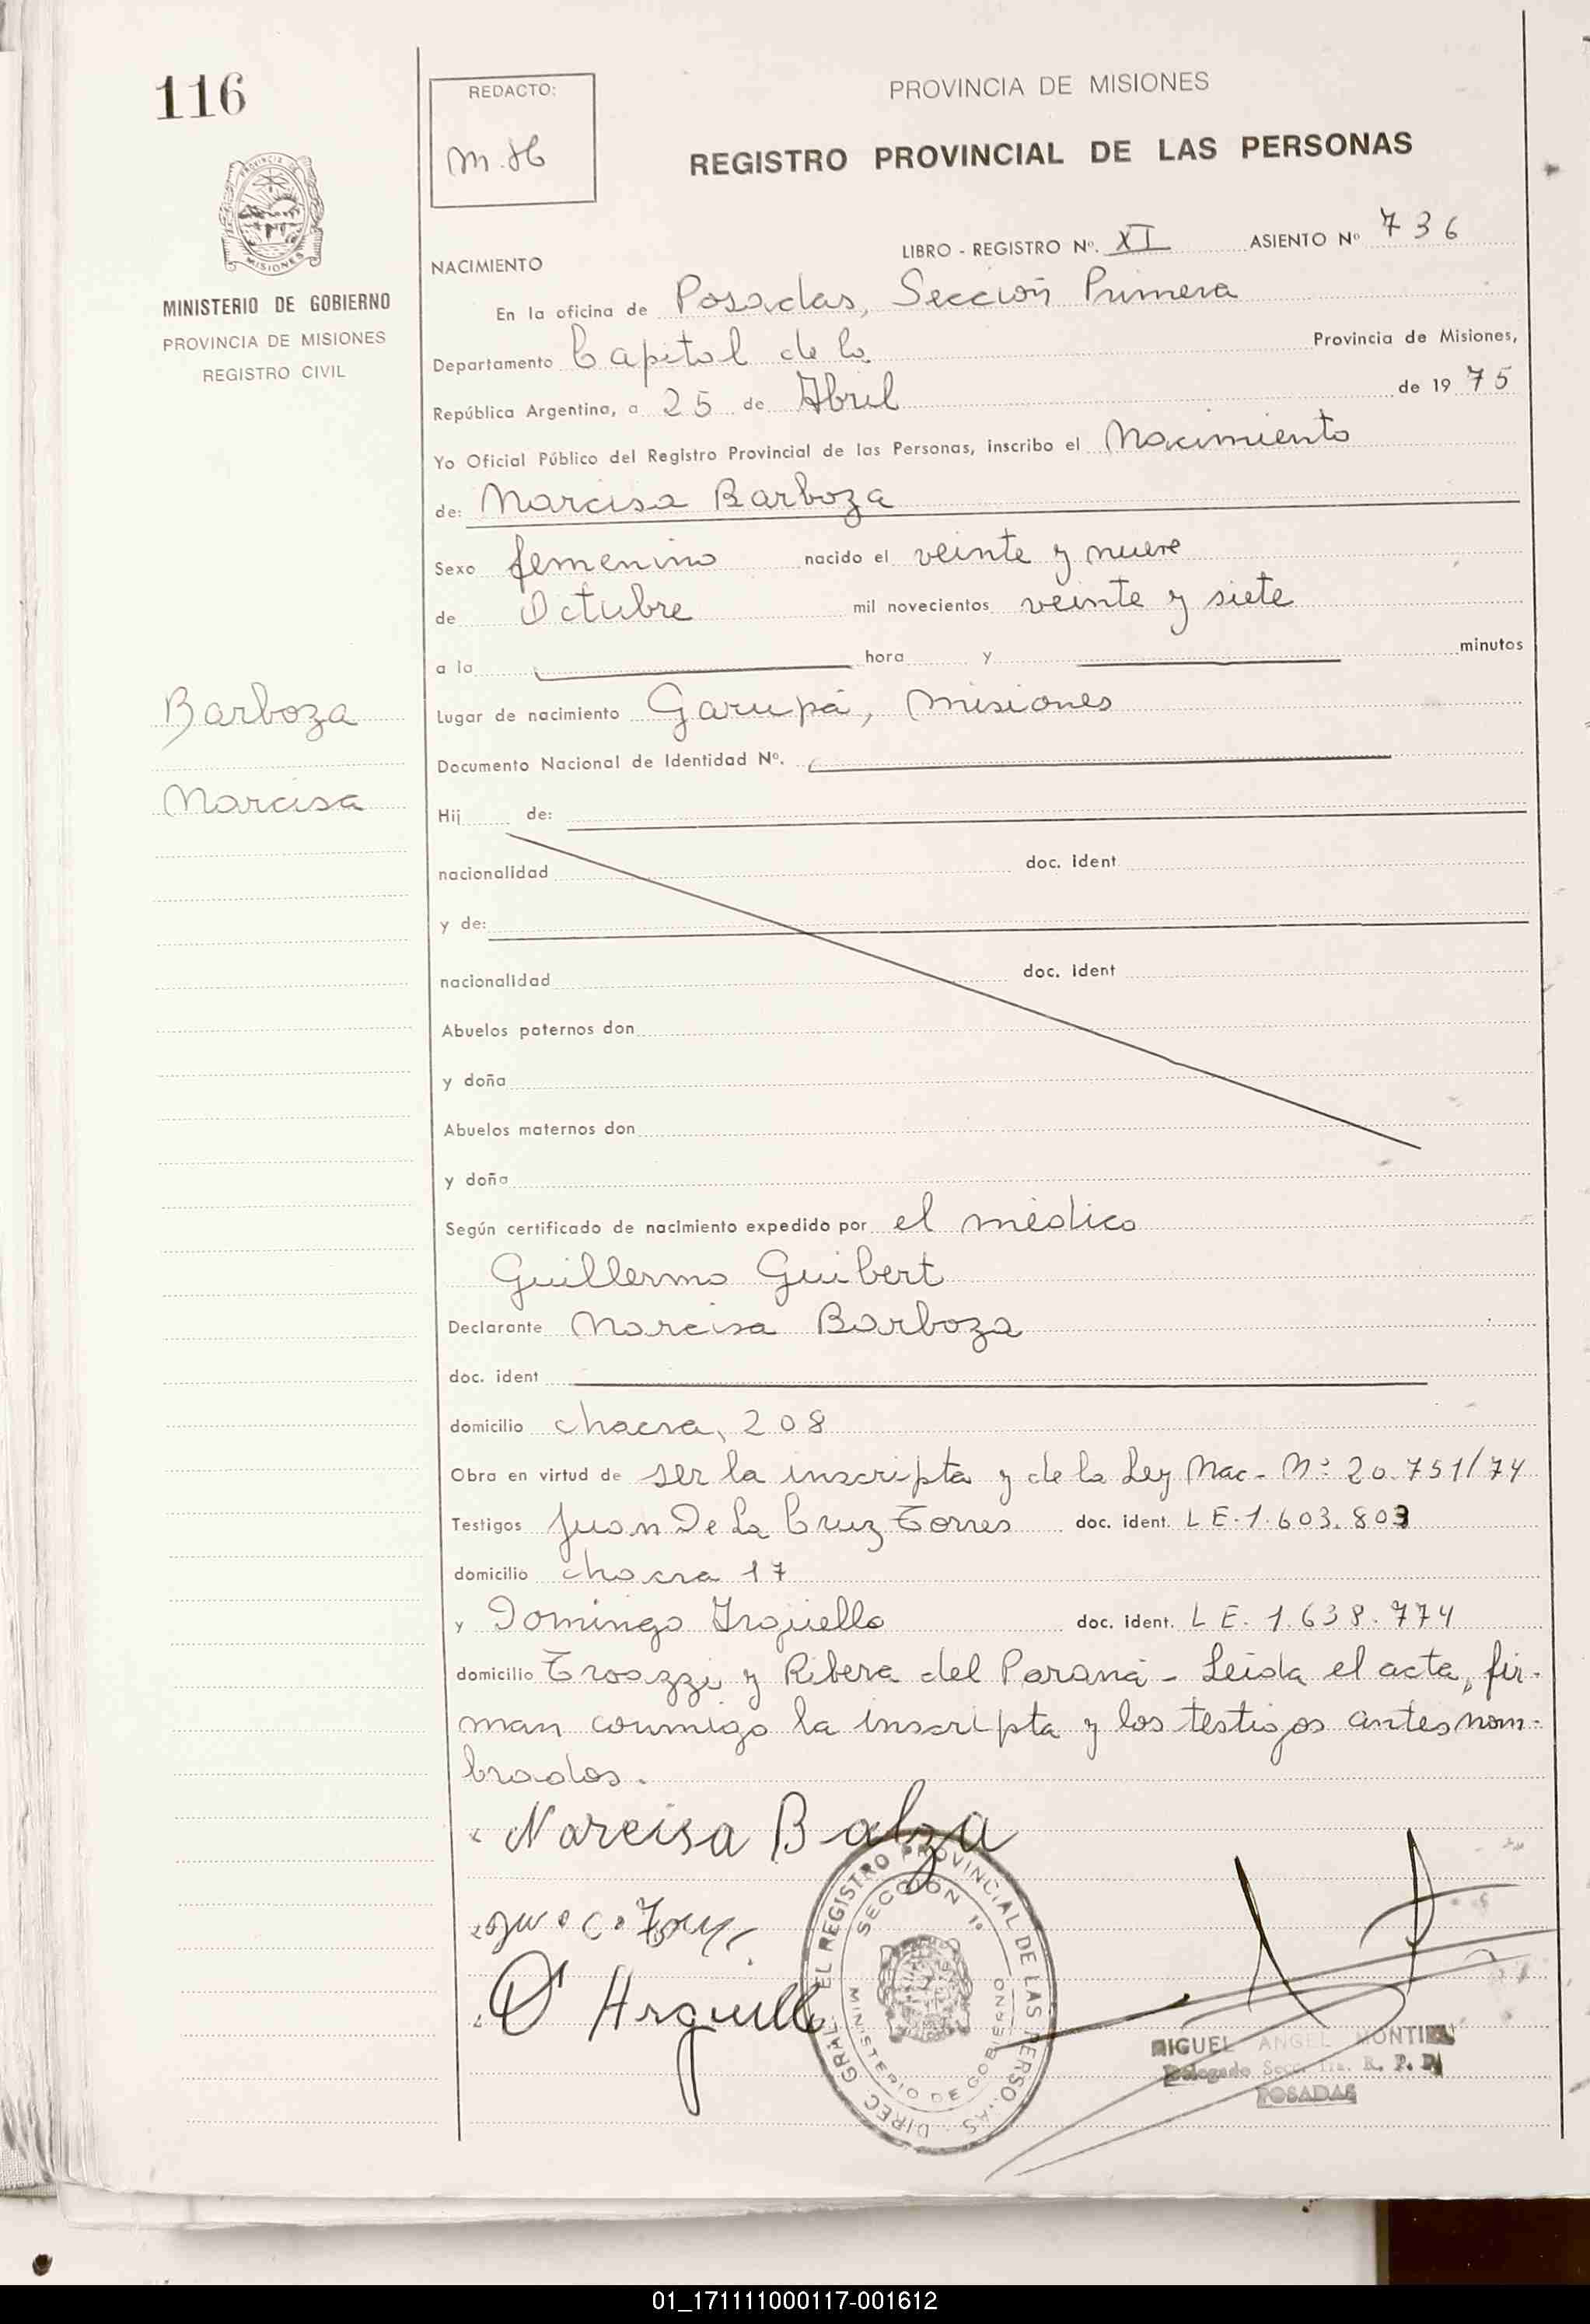 116
REDACTO:
M.H
PROVINCIA DE MISIONES
REGISTRO PROVINCIAL DE LAS PERSONAS
PROVINCIA DE MISIONES
MINISTERIO DE GOBIERNO
PROVINCIA DE MISIONES
REGISTRO CIVIL
LIBRO - REGISTRO Nº. XI ASIENTO Nº 736
NACIMIENTO
En la oficina de Posadas, Sección Primera
Departamento Capital de la Provincia de Misiones,
República Argentina, a 25 de Abril de 1975
Yo Oficial Público del Registro Provincial de las Personas, inscribo el Nacimiento
de: Narcisa Barboza
Sexo femenino nacido el veinte y nueve
de Octubre mil novecientos veinte y siete
a la hora y minutos
Barboza
Narcisa
Lugar de nacimiento Garupá, Misiones
Documento Nacional de Identidad Nº.
Hij de:
nacionalidad doc. ident
y de:
nacionalidad doc. ident
Abuelos paternos don
y doña
Abuelos maternos don
y doña
Según certificado de nacimiento expedido por el médico
Guillermo Guibert
Declarante Narcisa Barboza
doc. ident
domicilio chacra, 208
Obra en virtud de ser la inscripta y de la Ley Nac- Nº 20.751/74
Testigos Juan De La Cruz Torres doc. ident. L E. 1.603.803
domicilio chacra 17
y Domingo Arguello doc. ident. L E. 1.638.774
domicilio y Ribera del Paraná - Leida el acta, fir-
man conmigo la inscripta y los testigos antes nom-
brados.
Narcisa Balza
D Arguell
DIREC. GRAL. EL REGISTRO PROVINCIAL DE LAS PERSONAS
SECCION 1º
MINISTERIO DE GOBIERNO
MIGUEL ANGEL MONTIEL
Delegado Secc. 1ra. R. P. P.
POSADAS
01_171111000117-001612